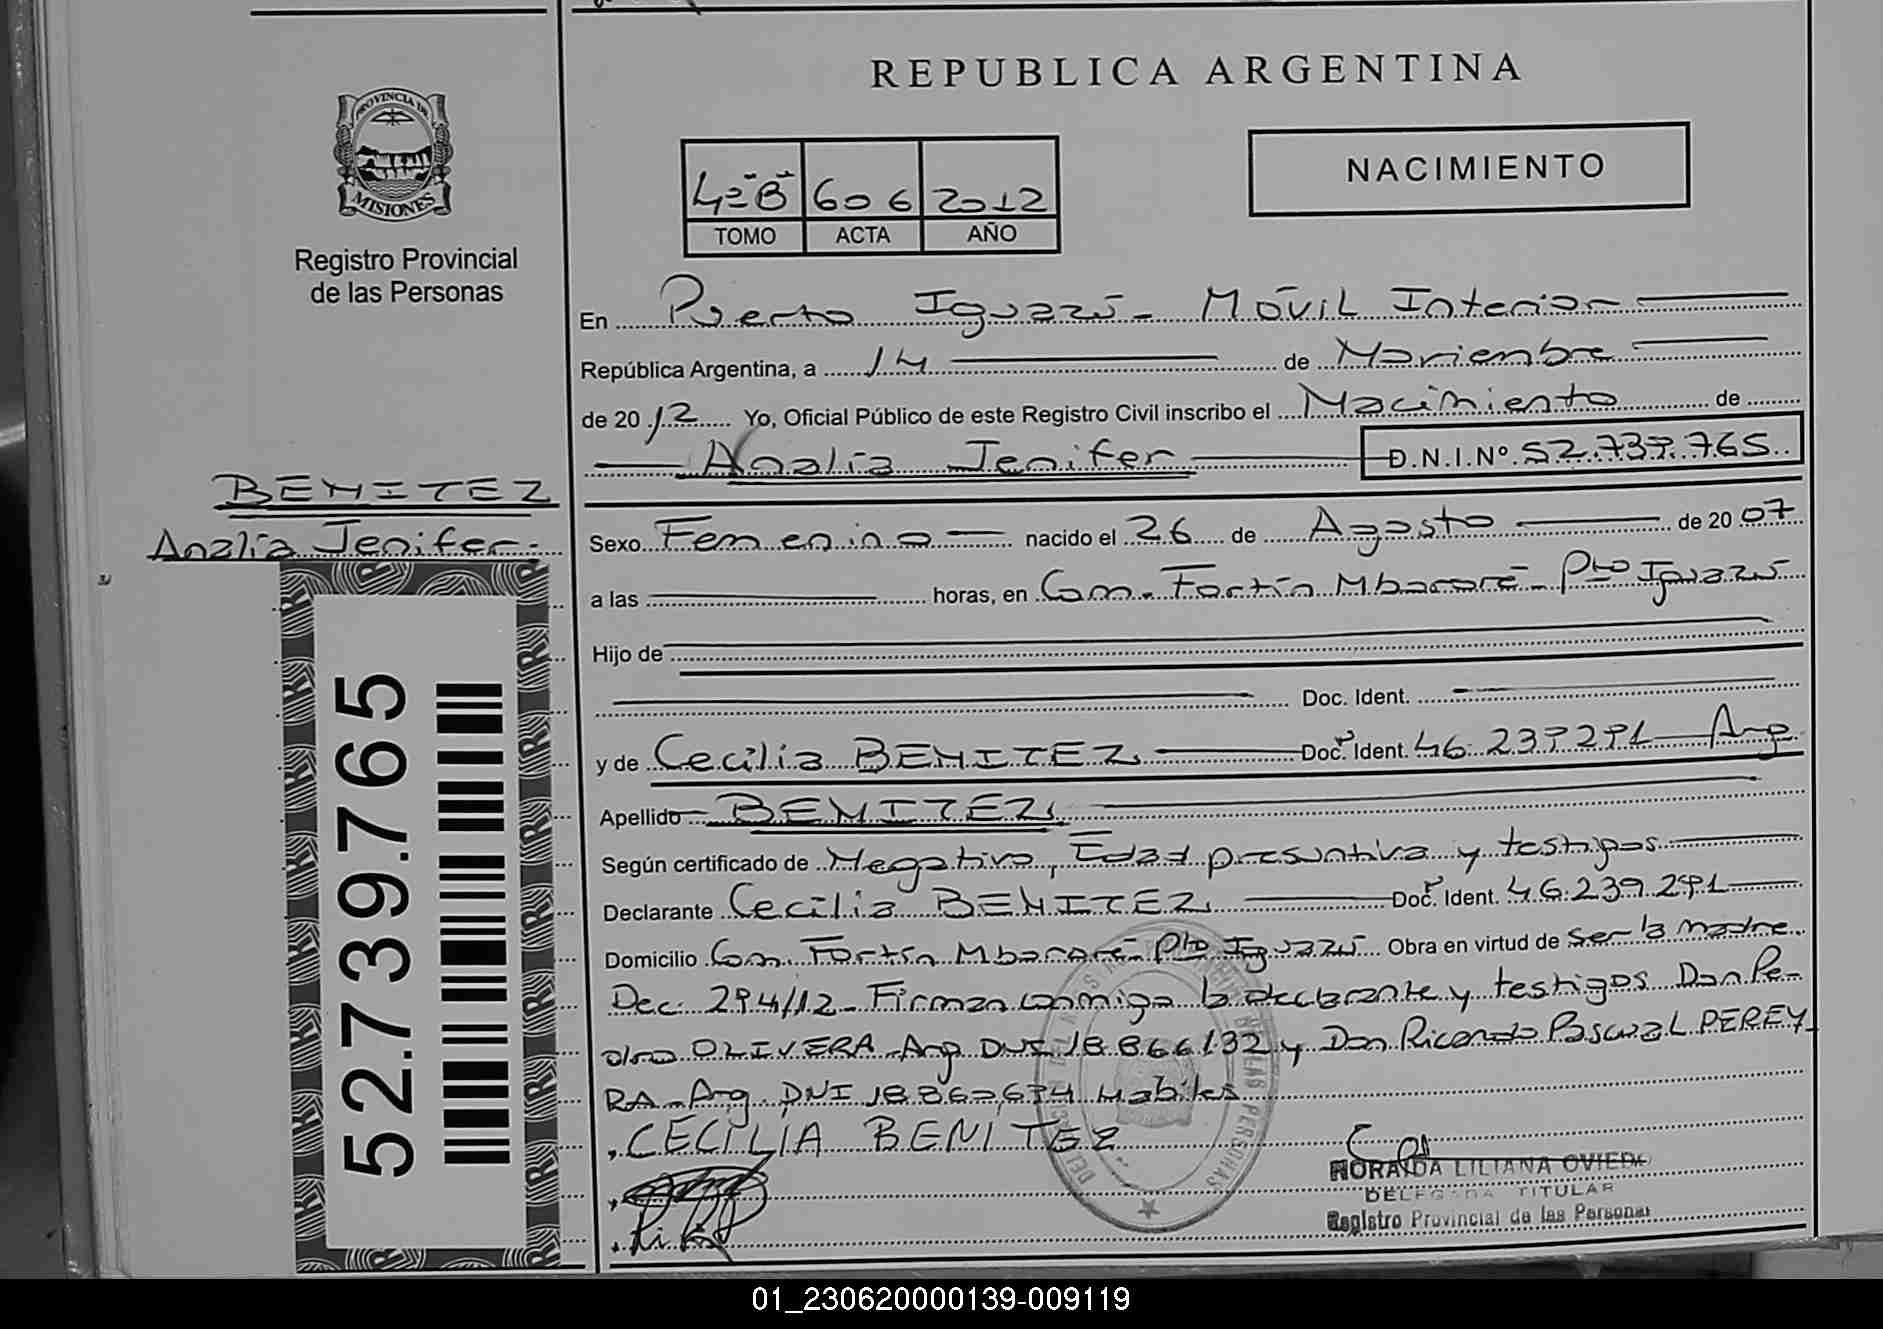 REPUBLICA ARGENTINA
PROVINCIA DE
MISIONES
Registro Provincial
de las Personas
4º"B" 606 2012
TOMO ACTA AÑO
NACIMIENTO
En Puerto Iguazú - MÓVIL Interior
República Argentina, a 14 de Noviembre
de 2012 Yo, Oficial Público de este Registro Civil inscribo el Nacimiento de
Analía Jenifer D.N.I.Nº 52.739.765
BENITEZ
Analía Jenifer.
Sexo Femenino nacido el 26 de Agosto de 2007
a las horas, en Com. Fortín Mbororé - Pto Iguazú
Hijo de
Doc. Ident.
y de Cecilia BENITEZ Doc. Ident. 46.239.291 Arg.
Apellido BENITEZ
Según certificado de Negativo, Edad presuntiva y testigos
Declarante Cecilia BENITEZ Doc. Ident. 46.239.291
Domicilio Com. Fortín Mbororé - Pto Iguazú Obra en virtud de ser la madre
Dec. 294/12 - Firman conmigo la declarante y testigos Don Pe-
dro OLIVERA - Arg. DNI 18.866.132 y Don Ricardo Pascual PEREY
RA - Arg. DNI Hábiles
CECILIA BENITEZ
NORAIDA LILIANA OVIEDO
DELEGADA TITULAR
Registro Provincial de las Personas
52.739.765
01_230620000139-009119